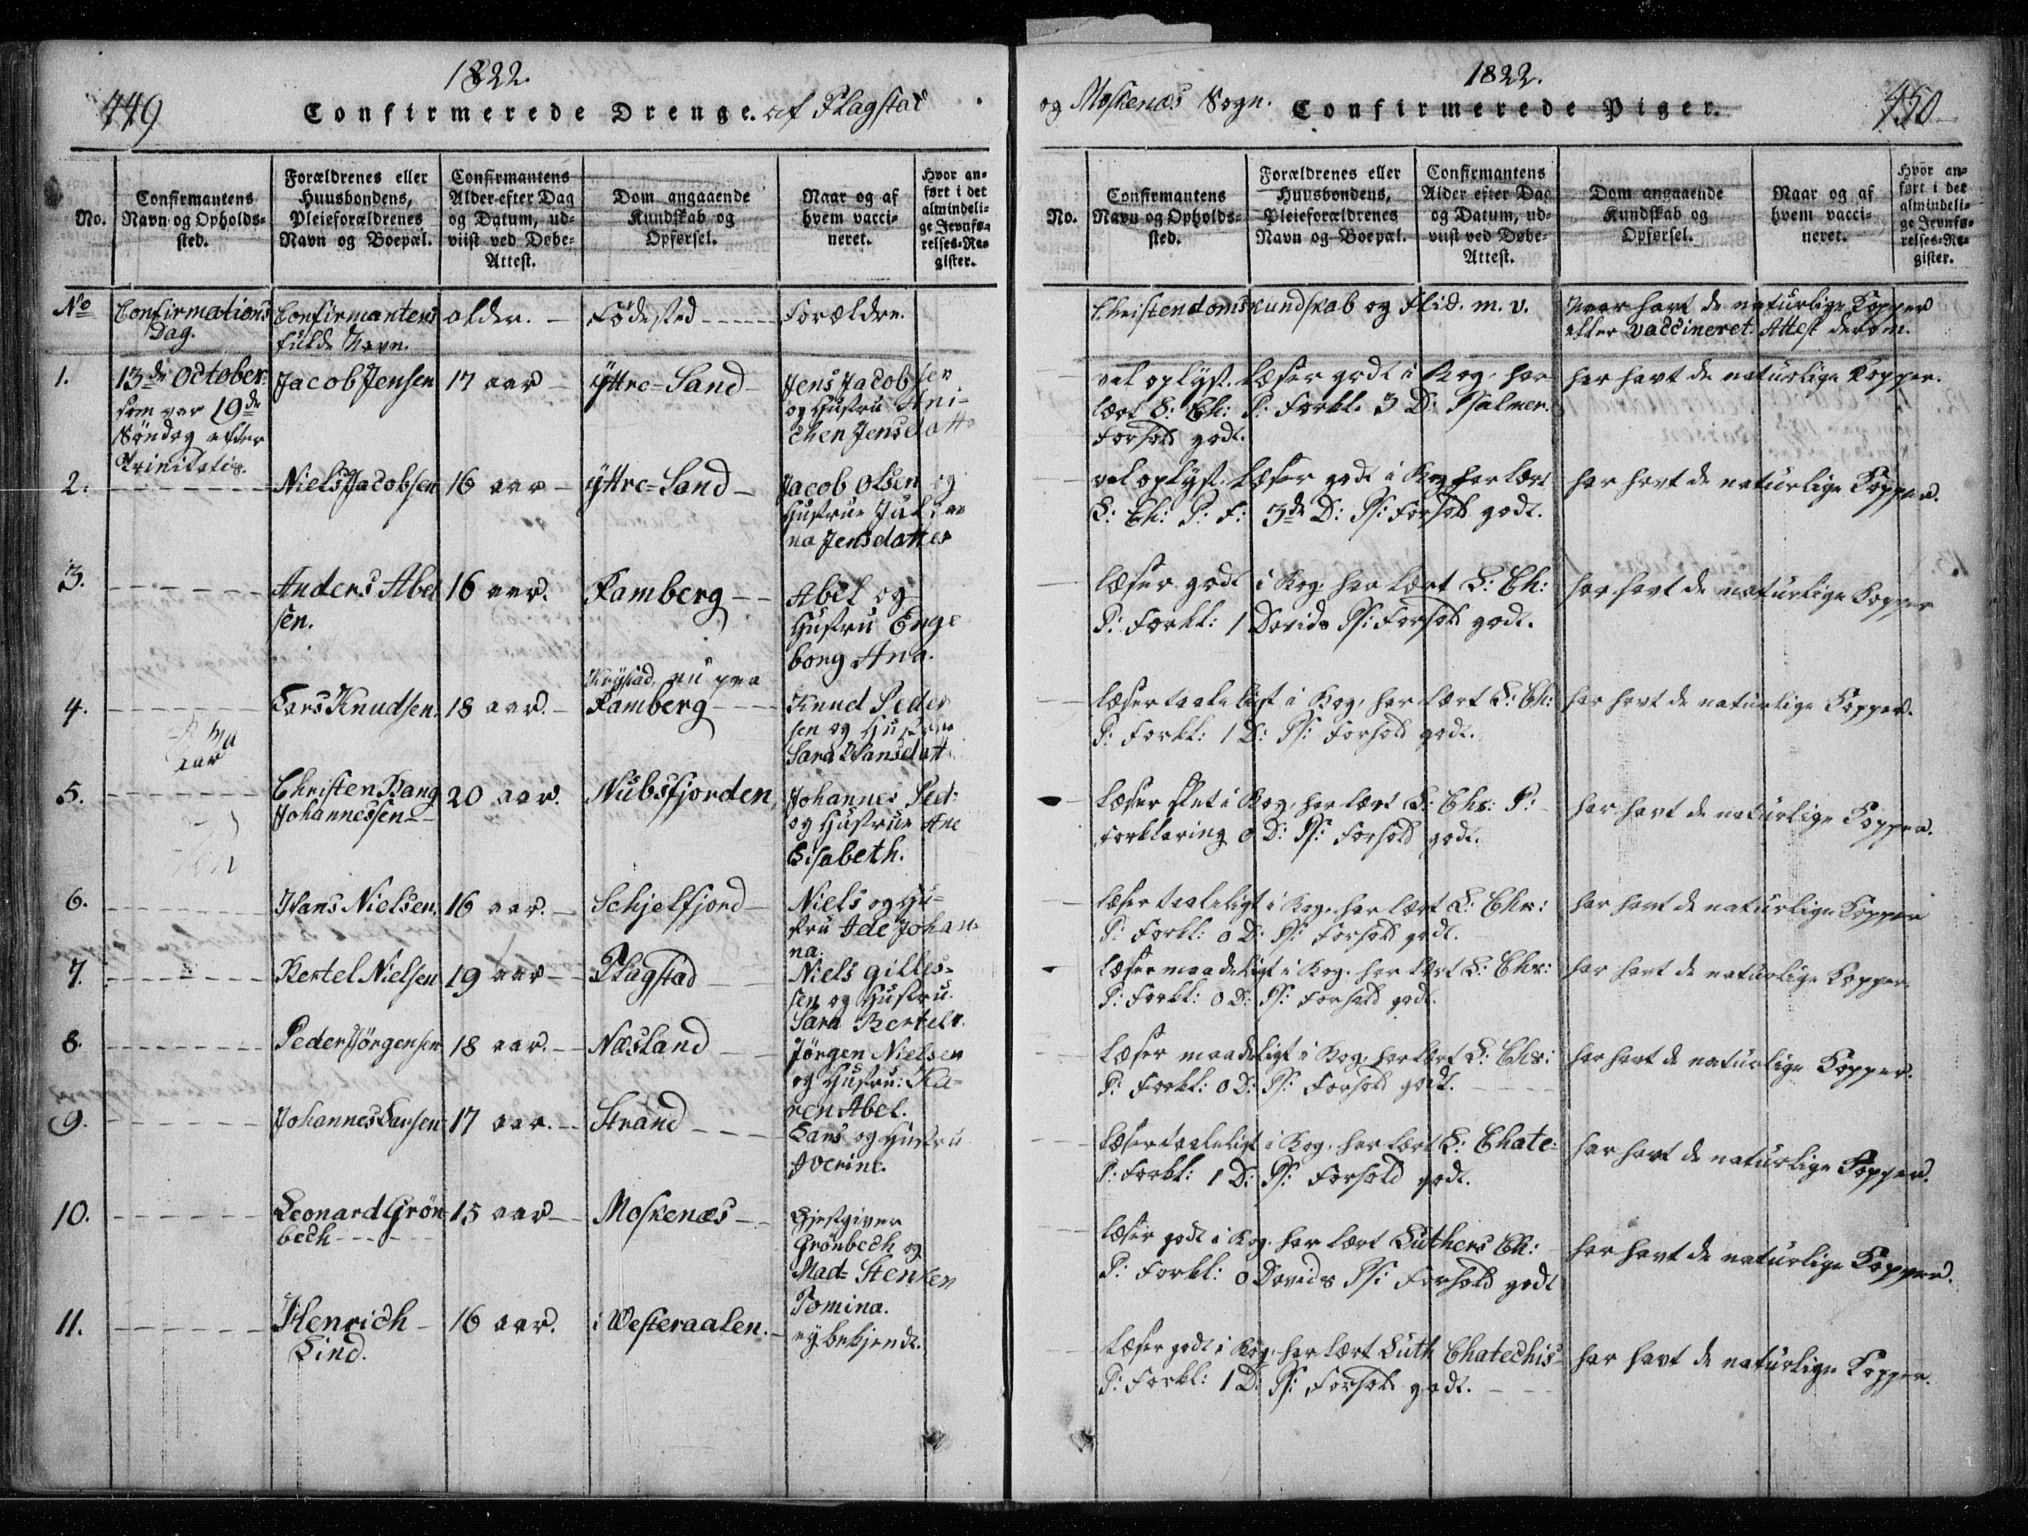 449
1822.
Confirmerede Drenge. af Flagstad
No.
Confirmantens
Navn og Opholds-
sted.
Forældrenes eller
Huusbondens,
Pleieforældrenes
Navn og Boepæl.
Confirmantens
Alder efter Dag
og Datum, ud-
viist ved Døbe-
Attest.
Dom angaaende
Kundskab og
Opførsel.
Naar og af
hvem vacci-
neret.
Hvor an-
ført i det
almindeli-
ge Jevnfø-
relses-Re-
gister.
No Confirmations Confirmantens alder. Födested Forældre.
Dag. fulde Navn.
1. 13de October Jacob Jensen 17 aar Yttre-Sand Jens Jacobsen
som var 19de og Hustru Ani-
Söndag efter chen Jensdatte
Trinitatis.
2. Niels Jacobsen 16 aar Yttre-Sand Jacob Olsen og
Hustrue Julia
na Jensdatter
3. Anders Abel 16 aar. Ramberg Abel og
sen. Hustru Enge
borg Ana.
Krystad, nu paa
4. Lars Knudsen. 18 aar. Ramberg Knud Peder
sen og Hustrue
Sara Hansdatt
5. Christen Bang 20 aar. Nubsfjorden, Johannes Ped:
Johannessen og Hustrue Ane
Lisabeth.
6. Hans Nielsen. 16 aar. Schjelfjord Niels og Hu-
stru Ide Johan-
na.
7. Bertel Nielsen 19 aar Flagstad Niels Gilles-
sen og Hustru.
Sara Bertels.
8. Peder Jörgensen 18 aar. Næsland Jörgen Nielsen
og Hustru: Ka-
ren Abel.
9. Johannes Larsen 17 aar. Strand Lars og Hustru
Averine.
10. Leonard Grön 15 aar Moskenæs Gjestgiver
bech Grönbech og
Mad= Stenken
Pomina.
11. Henrich 16 aar. i Westeraalen. ey bekjendt.
Lind.
1822.
og Moskenæs Sogn. Confirmerede Piger. 450
No.
Confirmantens
Navn og Opholds-
sted.
Forældrenes eller
Huusbondens,
Pleieforældrenes
Navn og Boepæl.
Confirmantens
Alder efter Dag
og Datum, ud-
viist ved Døbe-
Attest.
Dom angaaende
Kundskab og
Opførsel.
Naar og af
hvem vacci-
neret.
Hvor an-
ført i det
almindeli-
ge Jevnfø-
relses-Re-
gister.
Christendomskundskab og Flid. m. v. Naar havt de naturlige Kopper
eller vaccineret. Attest derom.
vel oplyst. læser godt i Bog, har har havt de naturlige Kopper.
lært L: Ch: P: Forkl. 3 D: Psalmer.
Forhold godt.
vel oplyst. læser godt i Bog har lært har havt de naturlige Kopper.
L: Ch: P: F: 3de D: Ps: Forhold godt.
læser godt i Bog, har lært L: Ch: har havt de naturlige Kopper
P: Forkl: 1 Davids Ps: Forhold godt.
læser taaleligt i Bog, har lært L: Ch: har havt de naturlige Kopper.
P: Forkl: 1 D: Ps: Forhold godt.
læser slet i Bog, har lært L: Chr: P: har havt de naturlige Kopper.
Forklaring 0 D: Ps: Forhold godt.
læser taaleligt i Bog, har lært L: Chr: har havt de naturlige Kopper
P: Forkl: 0 D: Ps: Forhold godt.
læser maadeligt i Bog. har lært L: Chr: har havt de naturlige Kopper.
P: Forkl: 0 D: Ps: Forhold godt.
læser maadeligt i Bog, har lært L: Chr: har havt de naturlige Kopper.
P: Forkl: 0 D: Ps: Forhold godt.
læser taaleligt i Bog, har lært L: Chate: har havt de naturlige Kopper.
P: Forkl: 1 D: Ps: Forhold godt.
læser godt i Bog. har lært Luthers Ch: har havt de naturlige Kopper.
P: Forkl: 0 Davids Ps: Forhold godt
læser godt i Bog, har lært Luth Chatechis- har havt de naturlige Kopper.
P: Forkl: 1 D: Ps: Forhold godt.